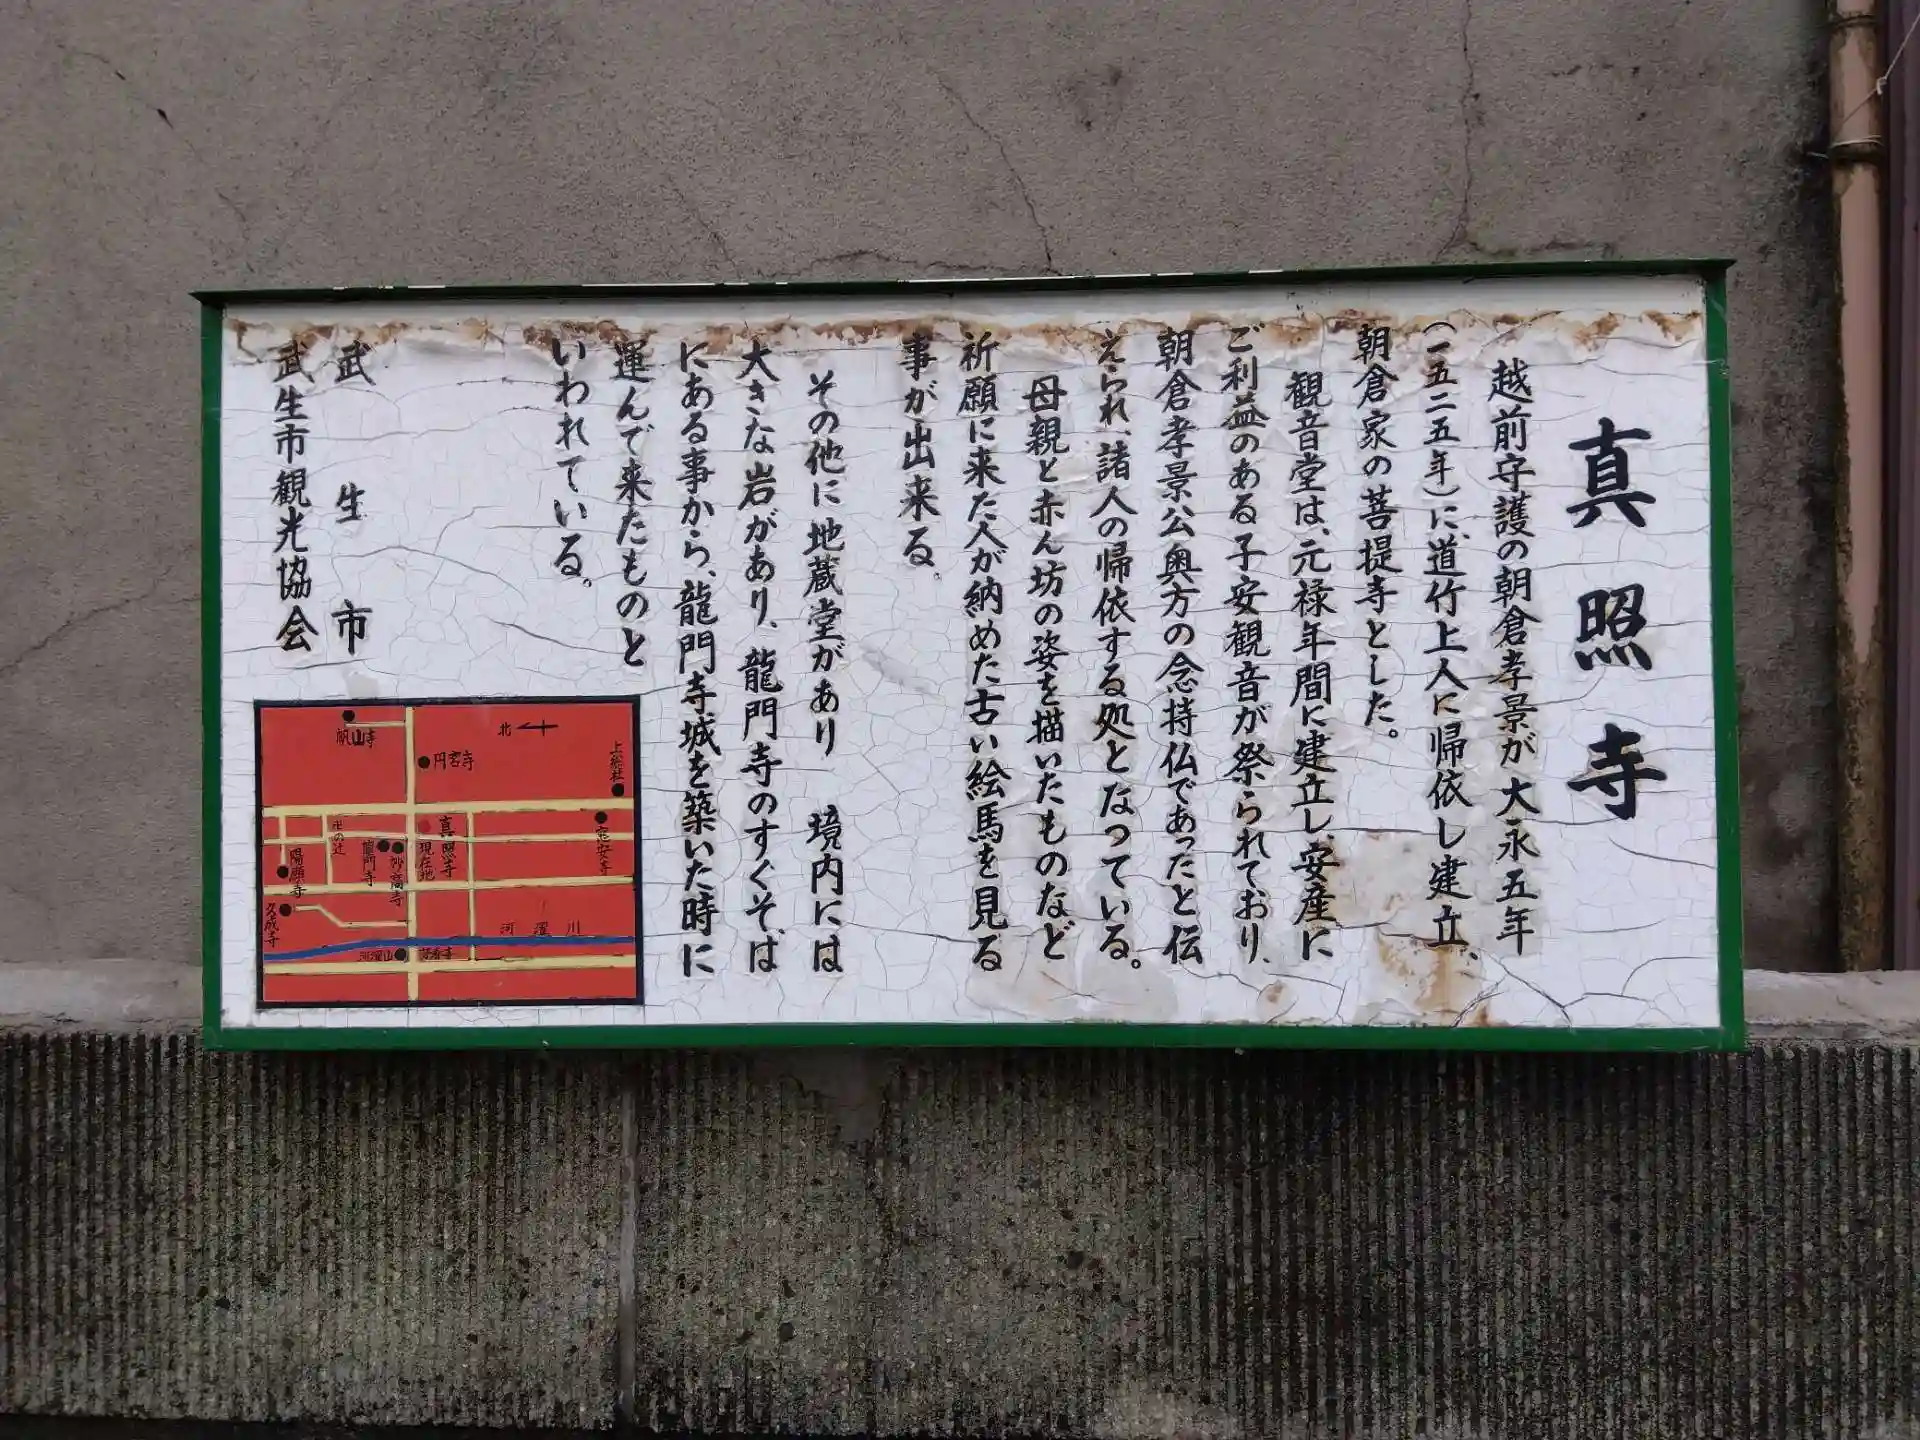 真照寺
越前守護の朝倉孝景が大永五年
(一五二五年)に、道竹上人に帰依し建立、
朝倉家の菩提寺とした。
観音堂は、元禄年間に建立し、安産に
ご利益のある子安観音が祭られており、
朝倉孝景公奥方の念持仏であったと伝
えられ、諸人の帰依する処となっている。
母親と赤ん坊の姿を描いたものなど
祈願に来た人が納めた古い絵馬を見る
事が出来る。
その他に地蔵堂があり 境内には
大きな岩があり、龍門寺のすぐそば
にある事から、龍門寺城を築いた時に
運んで来たものと
いわれている。
武生市
武生市観光協会
北
帆山寺
円宮寺
上総社
真照寺
現在地
卍の辻
龍門寺
妙高寺
陽願寺
久成寺
河濯川
河濯山